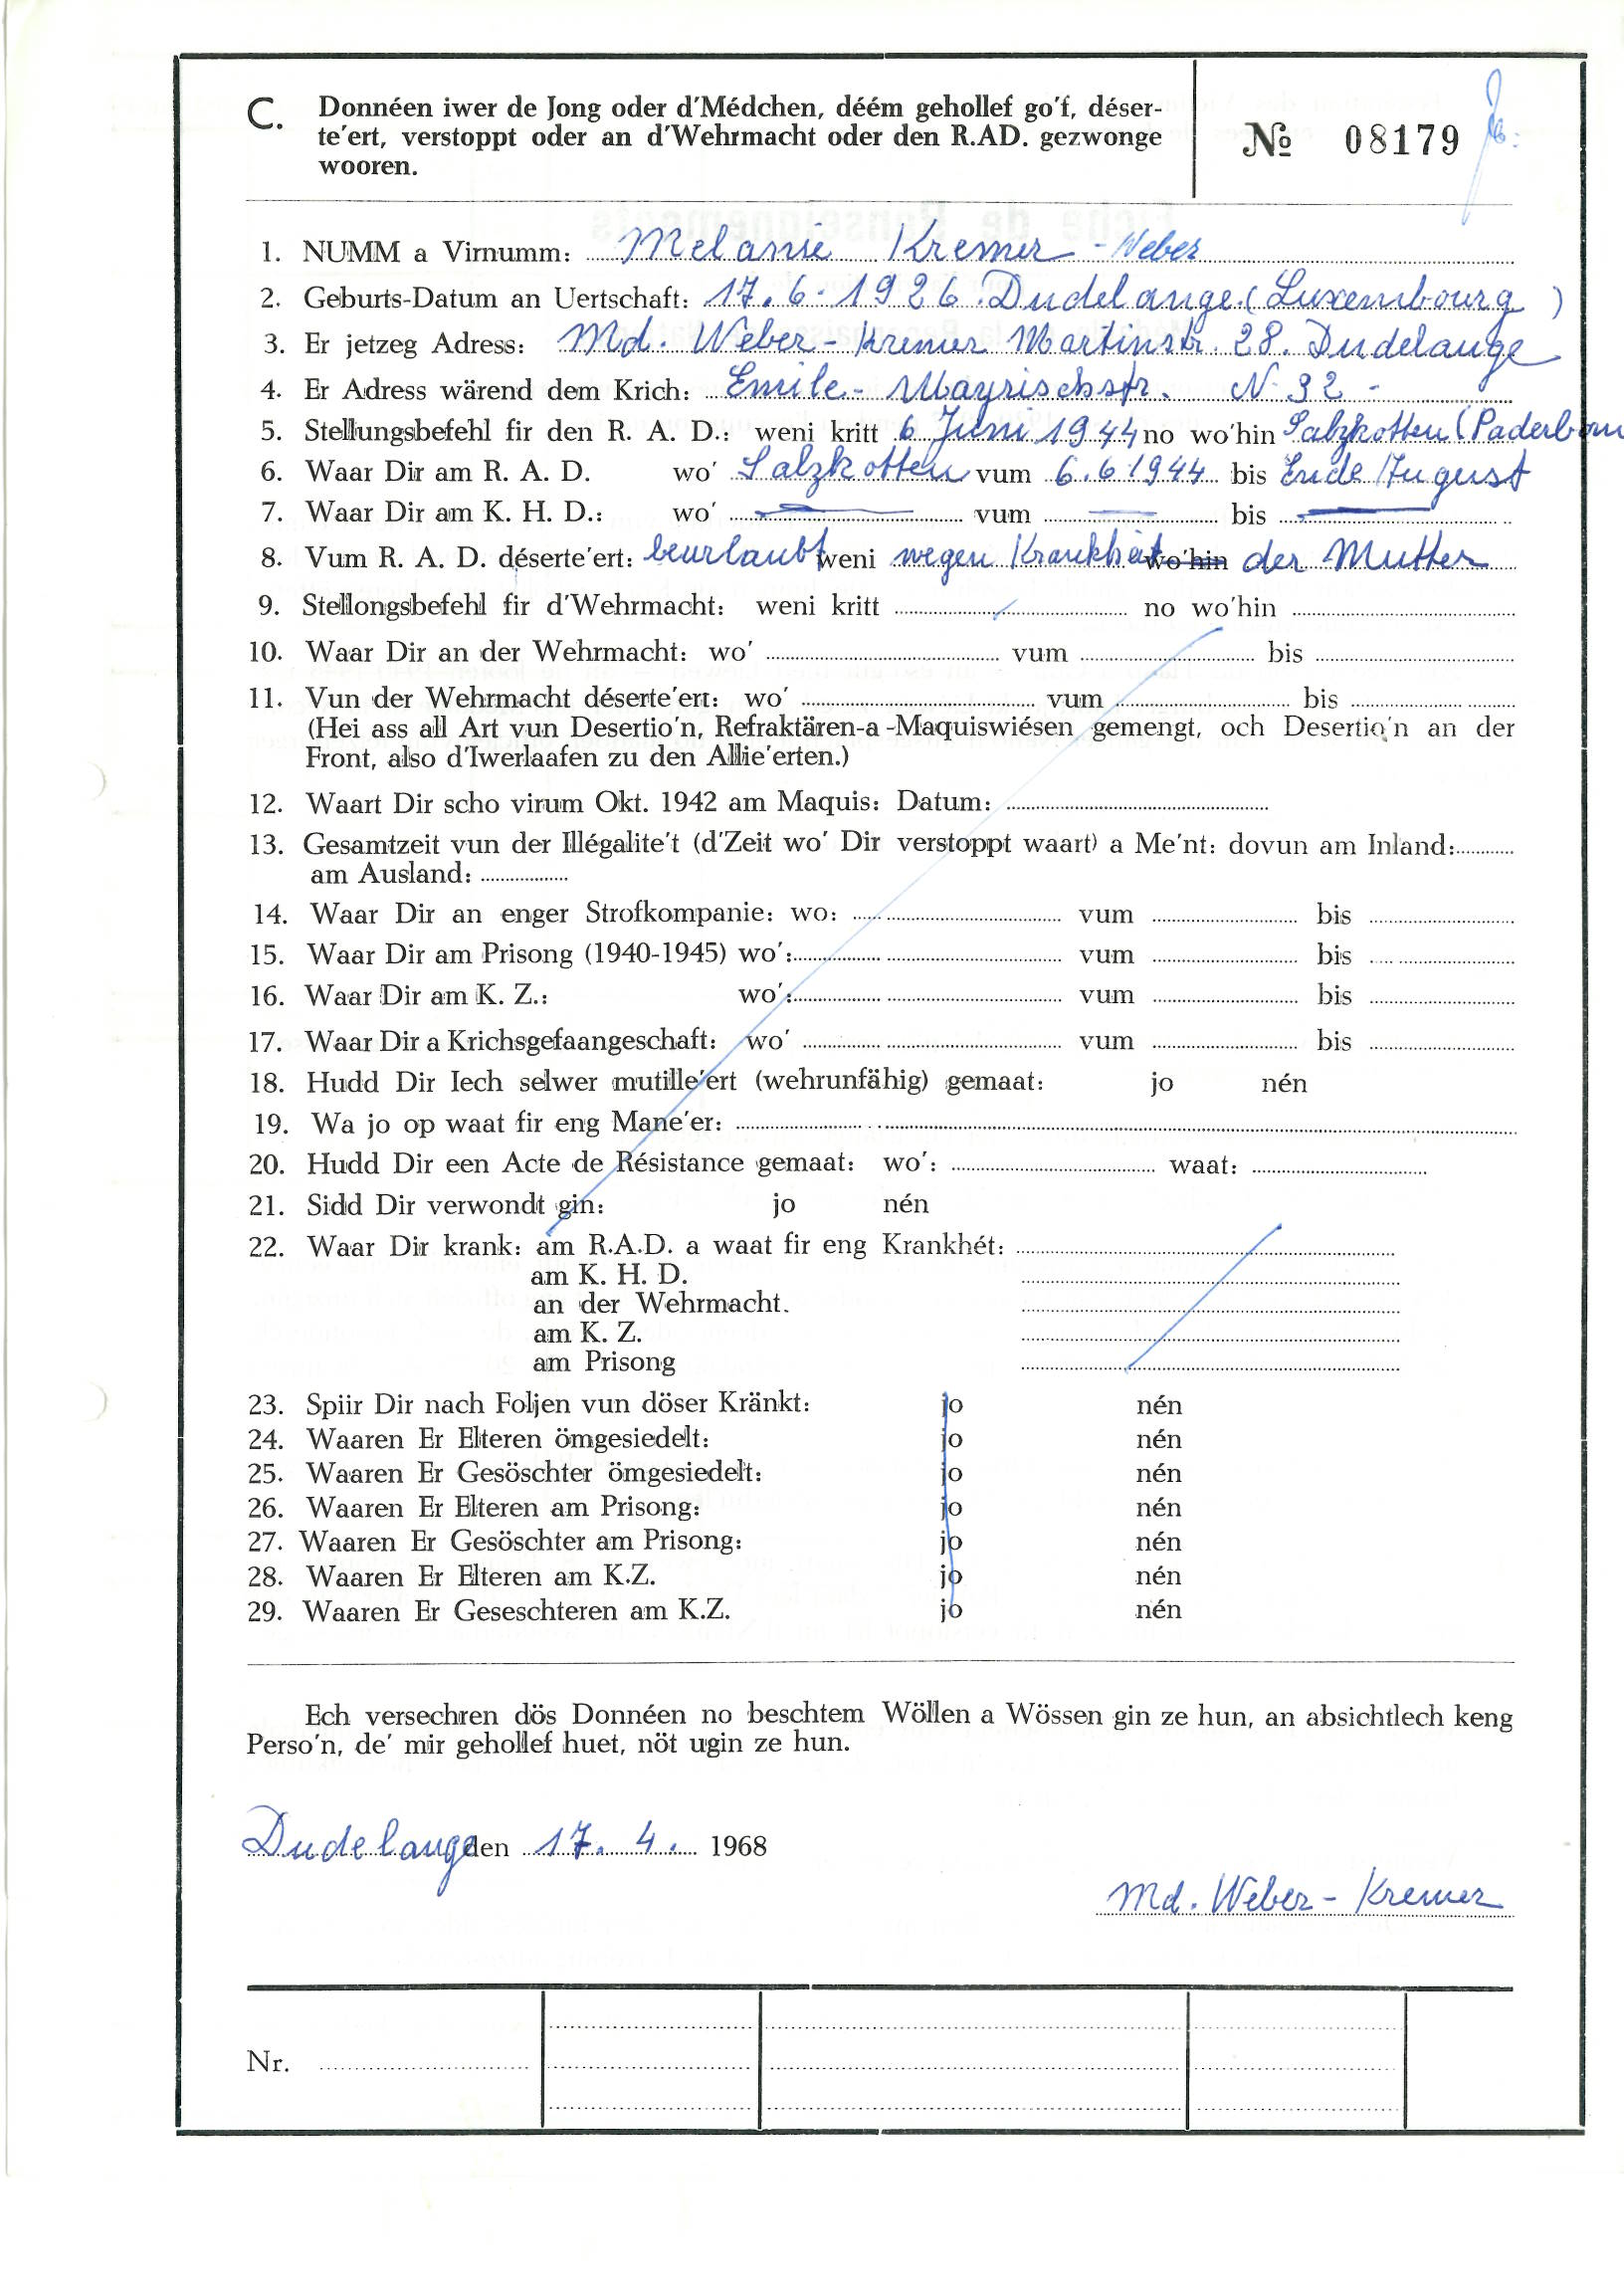 C. Donnéen iwer de Jong oder d'Médchen, déém gehollef go'f, déser-
te'ert, verstoppt oder an d'Wehrmacht oder den R.AD. gezwonge
wooren.
No 08179
1. NUMM a Virnumm: Melanie Kremer - Weber
2. Geburts-Datum an Uertschaft: 17.6.1926. Dudelange (Luxembourg)
3. Er jetzeg Adress: Md. Weber - Kremer Martinstr. 28. Dudelange
4. Er Adress wärend dem Krich: Emile - Mayrischstr. N 32 -
5. Stellungsbefehl fir den R. A. D.: weni kritt 6 Juni 1944 no wo'hin Salzkotten (Paderborn
6. Waar Dir am R. A. D. wo' Salzkotten vum 6.6.1944 bis Ende August
7. Waar Dir am K. H. D.: wo' vum bis
8. Vum R. A. D. déserte'ert: beurlaubt weni wegen Krankheit wo'hin der Mutter
9. Stellongsbefehl fir d'Wehrmacht: weni kritt no wo'hin
10. Waar Dir an der Wehrmacht: wo' vum bis
11. Vun der Wehrmacht déserte'ert: wo' vum bis
(Hei ass all Art vun Desertio'n, Refraktären-a-Maquiswiésen gemengt, och Desertio'n an der
Front, also d'Iwerlaafen zu den Allie'erten.)
12. Waart Dir scho virum Okt. 1942 am Maquis: Datum:
13. Gesamtzeit vun der Illégalite't (d'Zeit wo' Dir verstoppt waart) a Me'nt: dovun am Inland:
am Ausland:
14. Waar Dir an enger Strofkompanie: wo: vum bis
15. Waar Dir am Prisong (1940-1945) wo': vum bis
16. Waar Dir am K. Z.: wo': vum bis
17. Waar Dir a Krichsgefaangeschaft: wo' vum bis
18. Hudd Dir Iech selwer mutille'ert (wehrunfähig) gemaat: jo nén
19. Wa jo op waat fir eng Mane'er:
20. Hudd Dir een Acte de Résistance gemaat: wo': waat:
21. Sidd Dir verwondt gin: jo nén
22. Waar Dir krank: am R.A.D. a waat fir eng Krankhét:
am K. H. D.
an der Wehrmacht.
am K. Z.
am Prisong
23. Spiir Dir nach Foljen vun döser Kränkt: jo nén
24. Waaren Er Elteren ömgesiedelt: jo nén
25. Waaren Er Gesöschter ömgesiedelt: jo nén
26. Waaren Er Elteren am Prisong: jo nén
27. Waaren Er Gesöschter am Prisong: jo nén
28. Waaren Er Elteren am K.Z. jo nén
29. Waaren Er Geseschteren am K.Z. jo nén
Ech versechren dös Donnéen no beschtem Wöllen a Wössen gin ze hun, an absichtlech keng
Perso'n, de' mir gehollef huet, nöt ugin ze hun.
Dudelange den 17. 4. 1968
Md. Weber - Kremer
Nr.